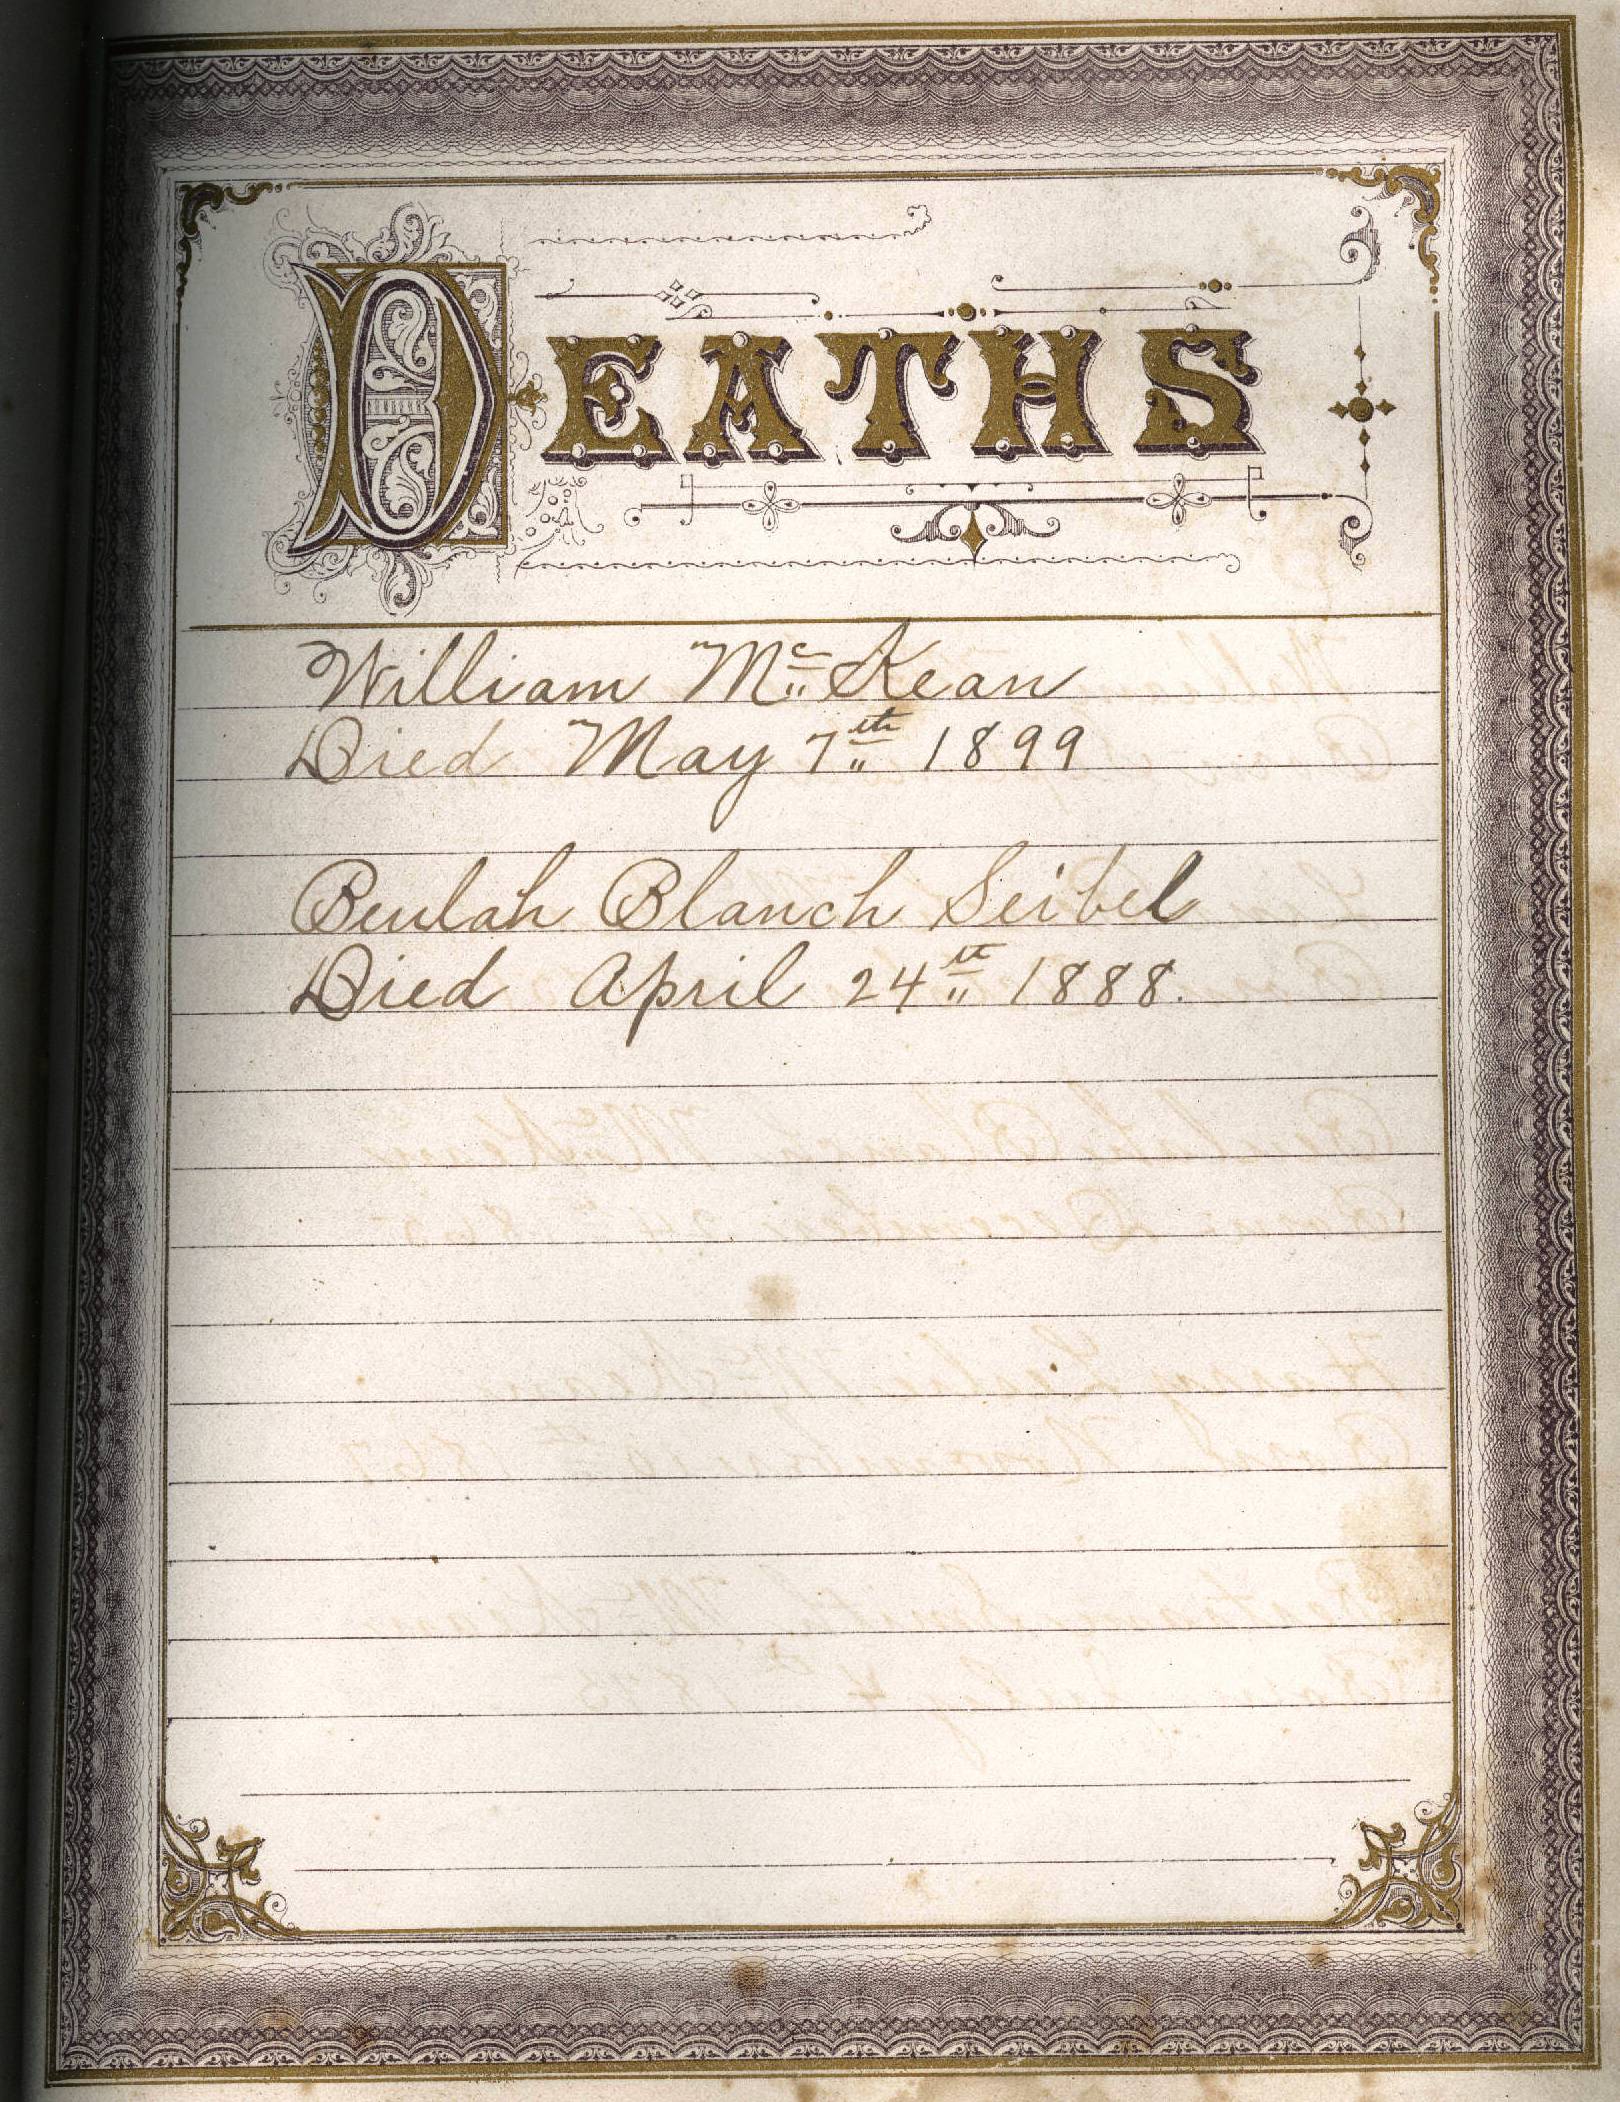 DEATHS
William Mc Kean
Died May 7th 1899
Beulah Blanch Seibel
Died April 24th 1888.